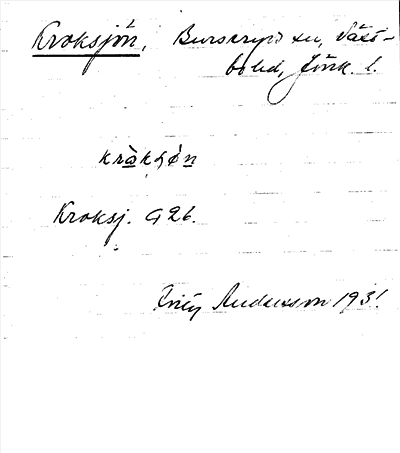 Kroksjön, Burseryds sn, Väst-
bo hd, Jönk. l.
kràkʂø̀n
Kroksj. G 26.
Andersson 1931